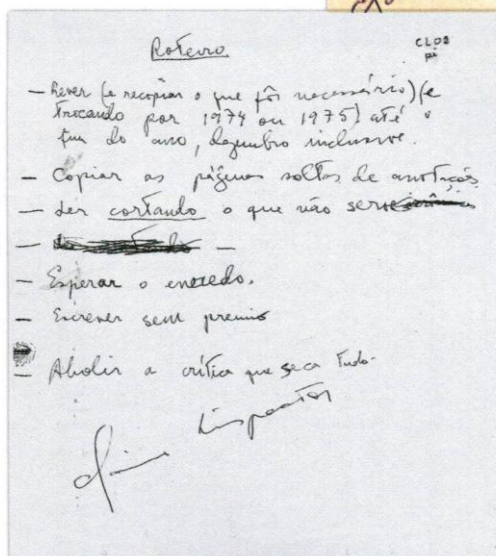 Roteiro
CL 08
pi
— Rever (e recopiar o que fôr necessário) (e
trocando por 1974 ou 1975) até o
fim do ano, dezembro inclusive.
— Copiar as páginas soltas de anotações
— Ler cortando o que não serve
—
— Esperar o enredo.
— Escrever sem premio
— Abolir a crítica que seca tudo.
Clarice Lispector